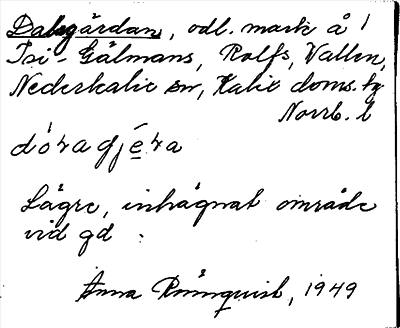 Dalsgärdan, odl. mark å /
Isi-Gälmans, Rolfs, Vallen,
Nederkalix sn, Kalix doms.tg
Norrb. l
Lägre, inhägnat område
vid gd.
Anna Rönnquist, 1949